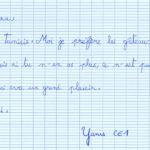 Tunisie. Moi je préfère les gâteau
si tu n'en as plus, ce n'est pa
un grand plaisir.
Yanis CE1